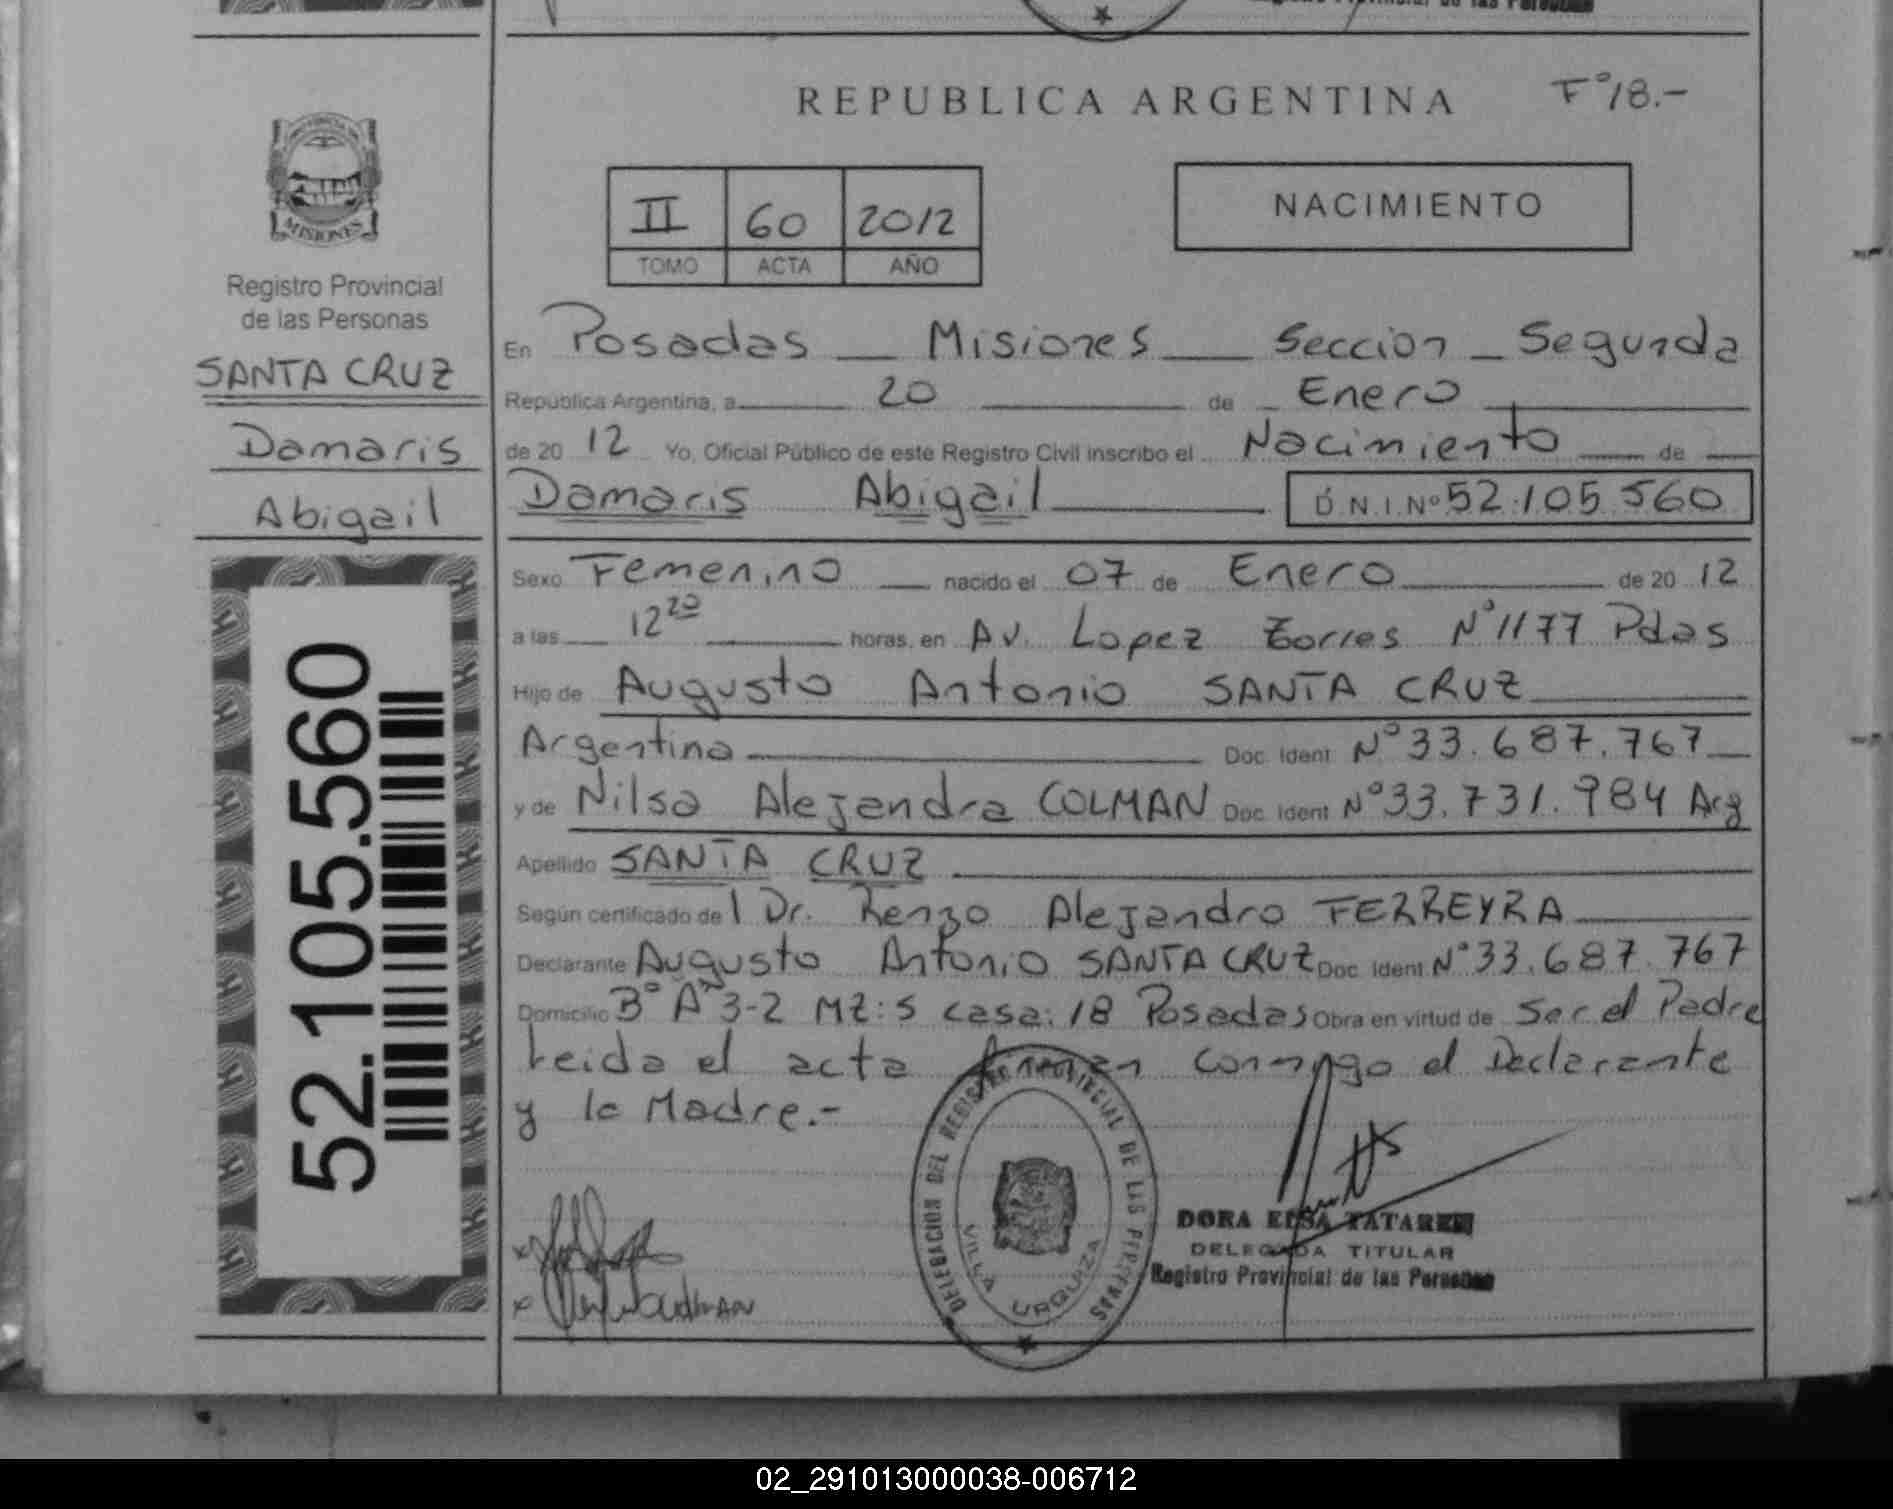 Registro Provincial de las Personas
REPUBLICA ARGENTINA
Fº 18.-
MISIONES
Registro Provincial
de las Personas
SANTA CRUZ
Damaris
Abigail
52.105.560
II 60 2012
TOMO ACTA AÑO
NACIMIENTO
En Posadas Misiones Seccion Segunda
República Argentina, a 20 de Enero
de 20 12 Yo, Oficial Público de este Registro Civil inscribo el Nacimiento de
Damaris Abigail D.N.I.Nº 52.105.560
Sexo Femenino nacido el 07 de Enero de 20 12
a las 12 20 horas, en Av. Lopez Torres Nº 1177 Pdas
Hijo de Augusto Antonio SANTA CRUZ
Argentino Doc. Ident Nº 33.687.767
y de Nilsa Alejandra COLMAN Doc. Ident Nº 33.731.984 Arg
Apellido SANTA CRUZ
Según certificado de l Dr. Renzo Alejandro FERREYRA
Declarante Augusto Antonio SANTA CRUZ Doc. Ident Nº 33.687.767
Domicilio Bº A 3-2 MZ: 5 casa: 18 Posadas Obra en virtud de Ser el Padre
Leida el acta firman conmigo el Declarante
y la Madre.-
DELEGACION DEL REGISTRO PROVINCIAL DE LAS PERSONAS
VILLA URQUIZA
DORA ELSA
DELEGADA TITULAR
Registro Provincial de las Personas
02_291013000038-006712